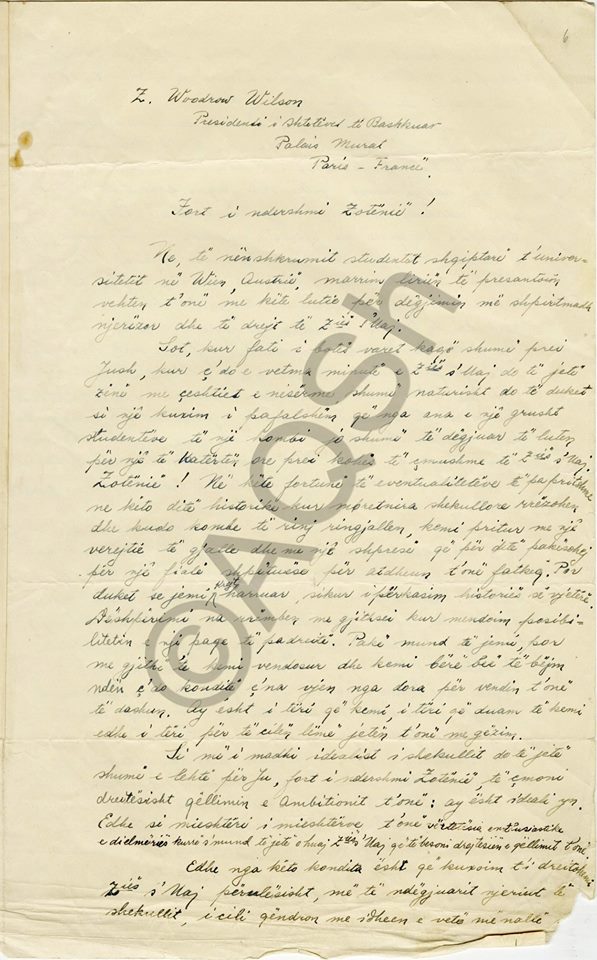 6
Z. Woodrow Wilson
Presidenti i Shtetëvet të Bashkuar
Palais Murat
Paris – Francë.
Fort i ndershmi Zotënië!
Ne, të nënshkrumit studentët shqiptarë t'univer-
sitetit në Wien, Austrië, marrim lirien të presantojm
vehten t'onë me këtë lutië për dëgjimin më shpirtmadh
njerëzor dhe të drejt të Z^iës s'Uaj.
Sot, kur fati i botës varet kaqë shumë prei
Jush, kur ç'do e vetma minutë e Z^iës s'Uaj do të jetë
zënë me çeshtiet e nesërme shumë naturisht do të duket
si një kuxim i pafalshëm që nga ana e një grusht
studentëve të një kombi jo shumë të dëgjuar të luten
për një të katërtën ore prei kohës të çmushme të Z^iës s'Uaj
Zotënië! Në këte fortunë të eventualitetëve të papritshme
ne këto ditë historike kur mbretnira shekullore rrëzohen
dhe kudo kombe të rinj ringjallen, kemi pritur me një
verejtie të gjallë dhe me një shpresë që për jetë
për një fialë shpëtuese për atdheun t'onë fatkeq. Por
duket se jemi krejt harruar, sikur i përkasim historiës së vjetërë.
Dëshpërimi na rrëmben me gjithsei kur mendoim posibi-
litetin e një paqe të padreitë. Pakë mund të jemi, por
me gjithë të kemi vendosur dhe kemi bërë bee të bëjm
ndën ç'do konditë ç'na vjen nga dora për vendin t'onë
të dashun. Ay ësht i tëri që kemi, i tëri që duam të kemi
edhe i tëri për të cilën lëmë jetën t'onë me gëzim.
Si më i madhi idealist i shekullit do të jetë
shumë e lehtë për Ju, fort i ndershmi Zotënië, të çmoni
dreitësisht qëllimin e ambitionit t'onë; ay ësht ideali yn.
Edhe si mieshtëri i mieshtërve t'onë vërtetësia enthusiaste
e dielmëriës kurrë s'mund të jetë e huaj Z^iës s'Uaj që të besoni drejtësien e qëllimit t'onë.
Edhe nga këto kondita ësht që kuxoim t'i dreitohemi
Z^iës s'Uaj përulësisht, më të ndëgjuarit njeriut të
shekullit, i cili qëndron me idheen e vetë më naltë
©ACSH